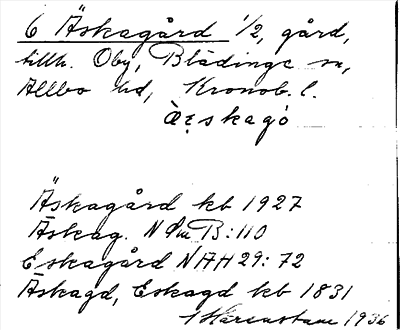 6 Äskagård 1/2, gård,
tillh. Oby, Blädinge sn,
Allbo hd, Kronob. l.
Äskagård kb 1927
Äskag. N Sm B: 110
Eskagård NAH 29: 72
Äskagd, Eskagd kb 1831
1936